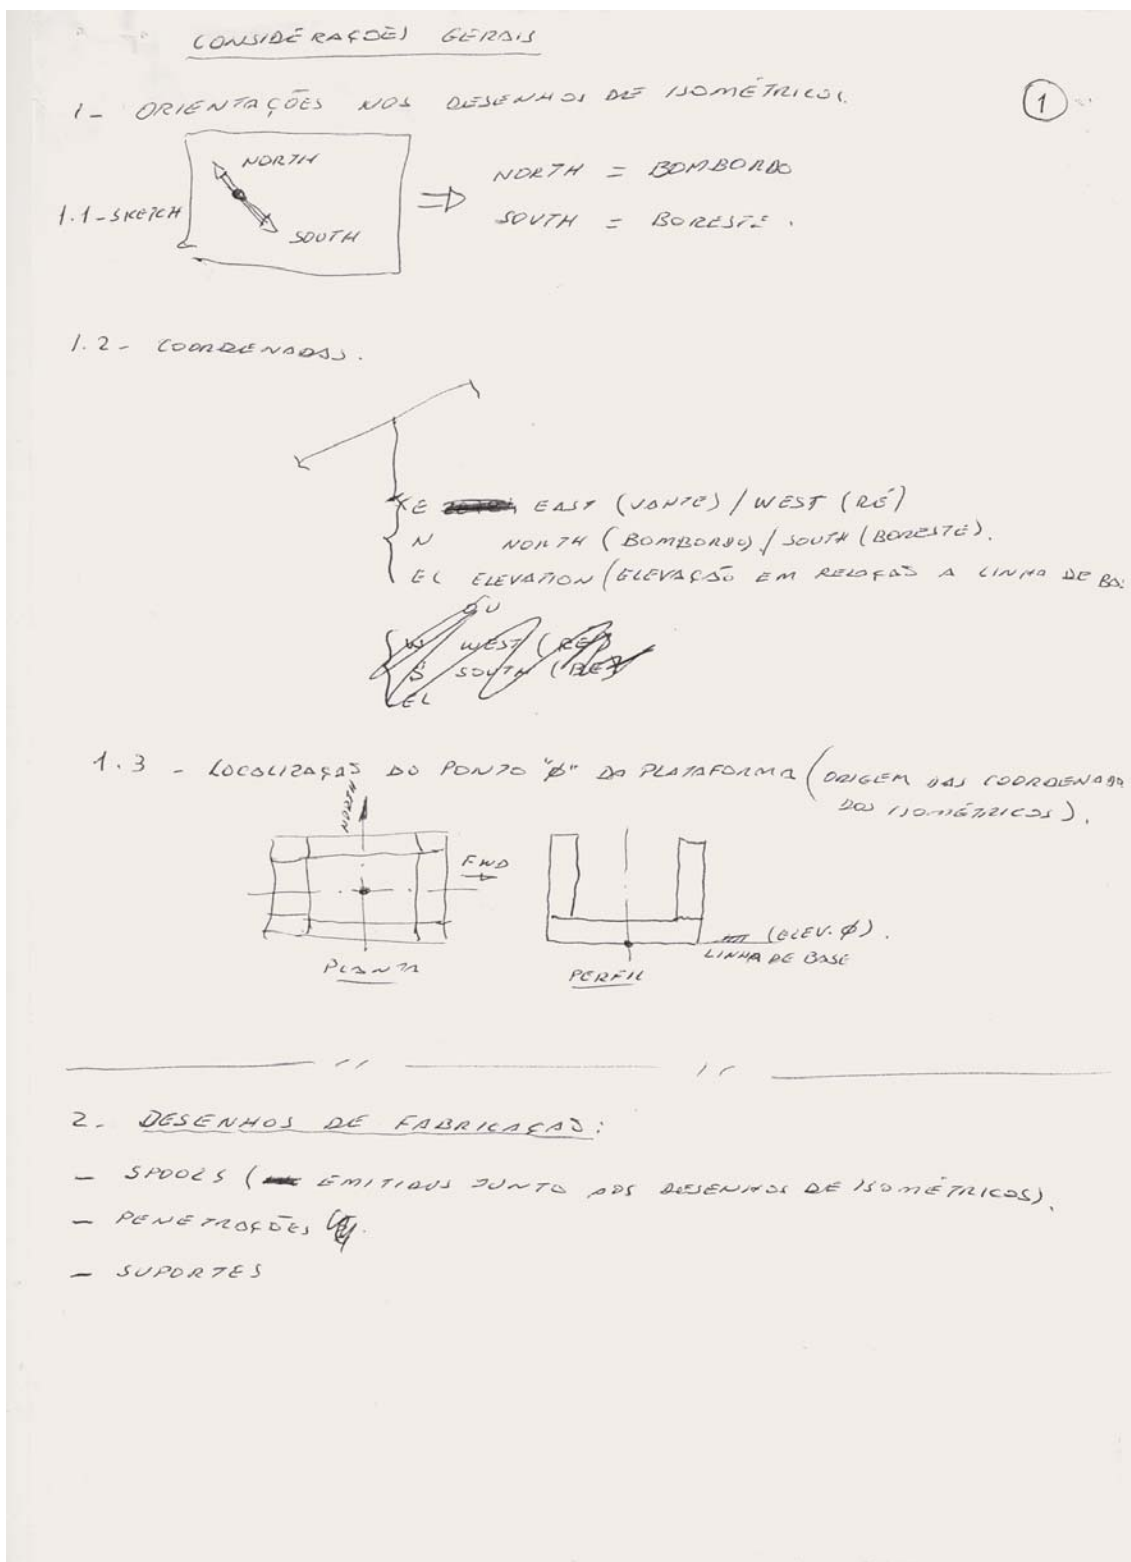 CONSIDERAÇÕES GERAIS
1- ORIENTAÇÕES NOS DESENHOS DE ISOMÉTRICOS.
1
NORTH
SOUTH
1.1-SKETCH
⇒
NORTH = BOMBORDO
SOUTH = BORESTE.
1.2- COORDENADAS.
E EAST (VANTE) / WEST (RÉ)
N NORTH (BOMBORDO) / SOUTH (BORESTE).
EL ELEVATION (ELEVAÇÃO EM RELAÇÃO A LINHA DE BA
OU
W WEST (RÉ)
S SOUTH
EL
1.3 - LOCALIZAÇÃO DO PONTO "Ø" DA PLATAFORMA (ORIGEM DAS COORDENADA
DOS ISOMÉTRICOS).
NORTH
FWD
PLANTA
PERFIL
(ELEV. Ø).
LINHA DE BASE
2- DESENHOS DE FABRICAÇÃO:
- SPOOLS (EMITIDOS JUNTO AOS DESENHOS DE ISOMÉTRICOS).
- PENETRAÇÕES.
- SUPORTES